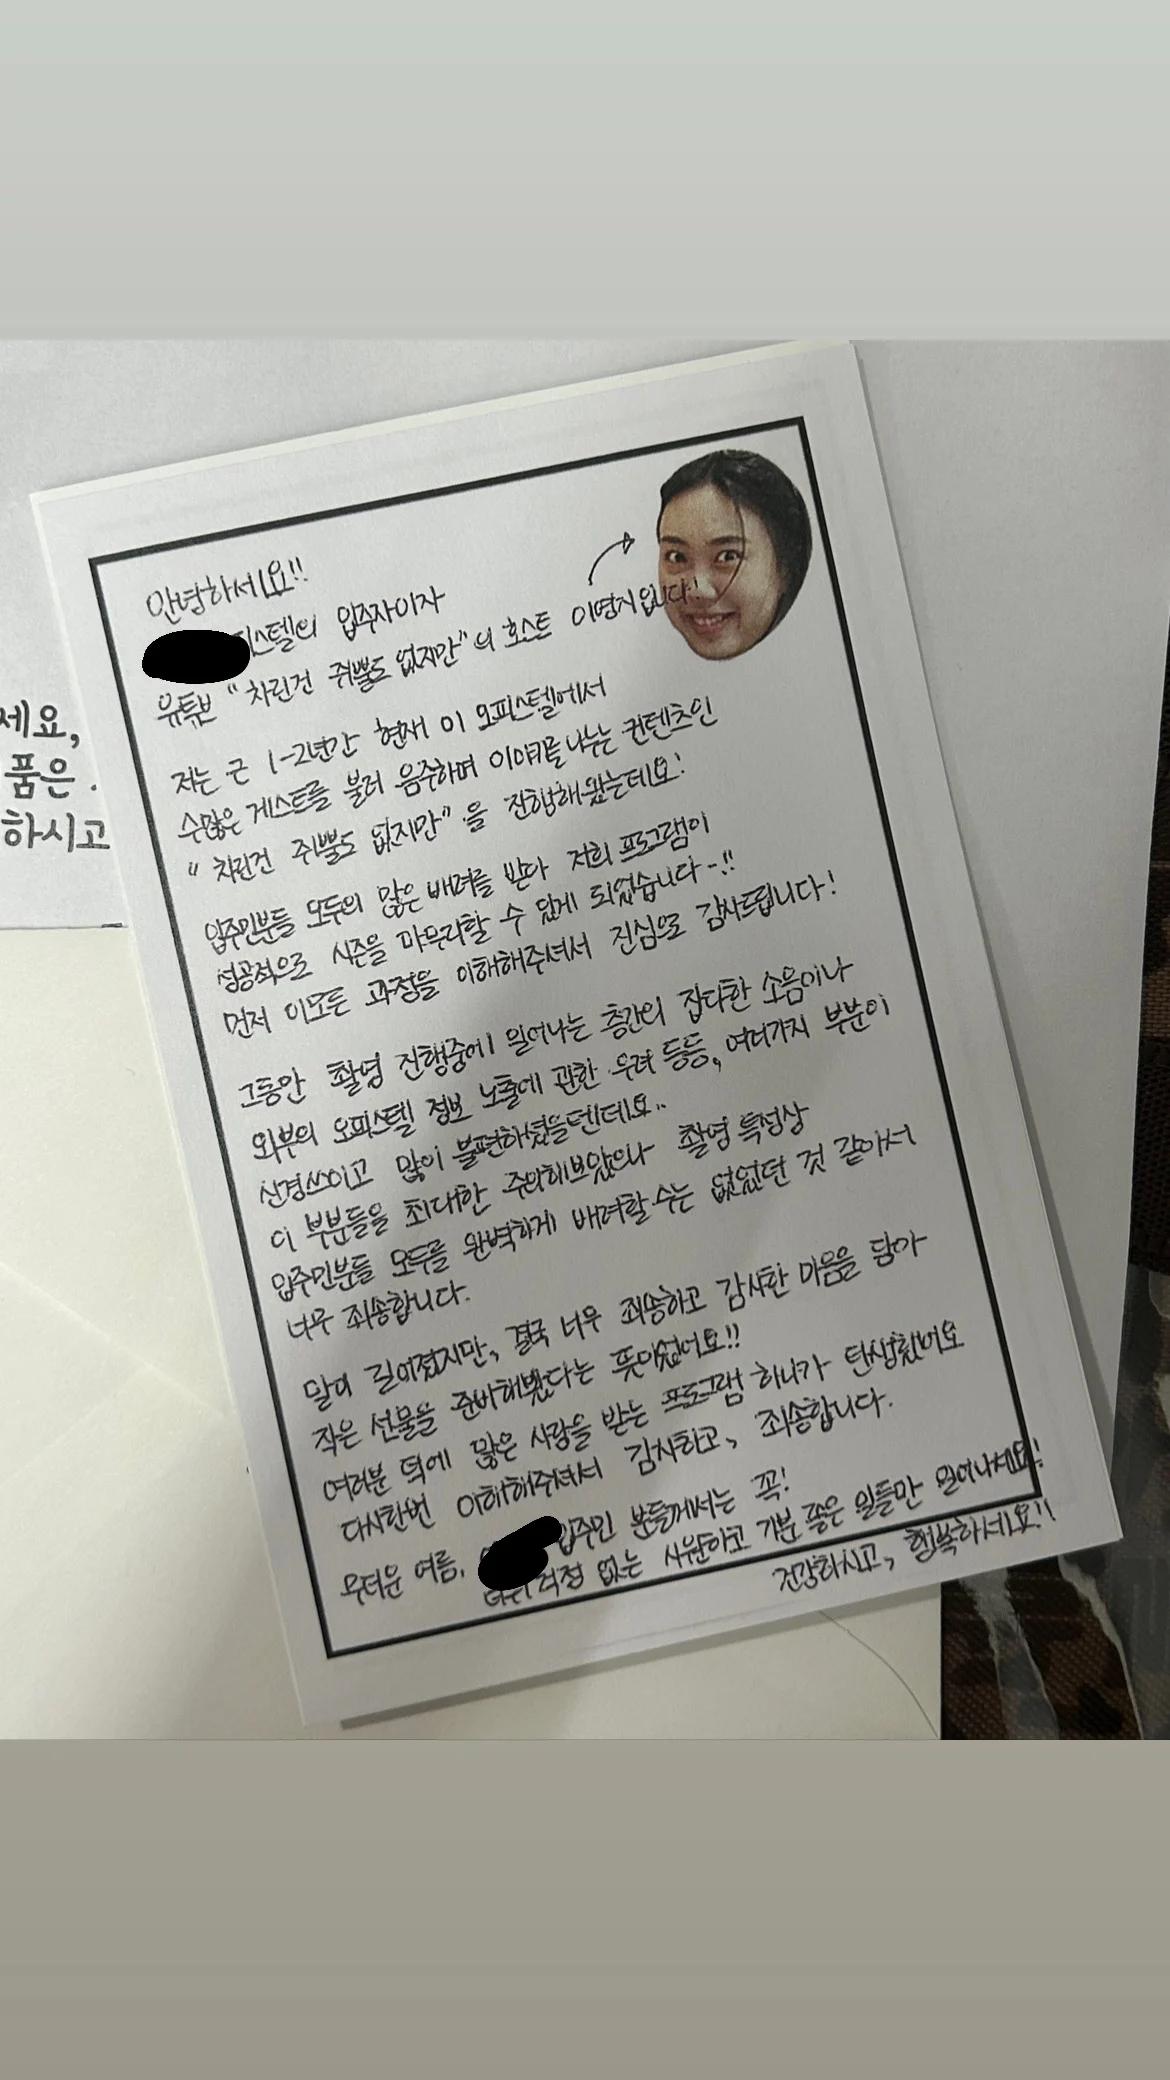 세요,
품은
하시고
안녕하세요!!
피스텔의 입주자이자
유튜브 "차린건 쥐뿔도 없지만"의 호스트 이영지입니다!
저는 근 1-2년간 현재 이 오피스텔에서
수많은 게스트를 불러 음주하며 이야기를 나누는 컨텐츠인
"차린건 쥐뿔도 없지만"을 진행해왔는데요!
입주민분들 모두의 많은 배려를 받아 저희 프로그램이
성공적으로 시즌을 마무리할 수 있게 되었습니다-!!
먼저 이모든 과정을 이해해주셔서 진심으로 감사드립니다!
그동안 촬영 진행중에 일어나는 층간의 잡다한 소음이나
외부의 오피스텔 정보 노출에 관한 우려 등등, 여러가지 부분이
신경쓰이고 많이 불편하셨을텐데요..
이 부분들을 최대한 주의해보았으나 촬영 특성상
입주민분들 모두를 완벽하게 배려할수는 없었던 것 같아서
너무 죄송합니다.
말이 길어졌지만, 결국 너무 죄송하고 감사한 마음을 담아
작은 선물을 준비해봤다는 뜻이었어요!!
여러분 덕에 많은 사랑을 받는 프로그램 하나가 탄생했어요
다시한번 이해해주셔서 감사하고, 죄송합니다.
무더운 여름, 입주민 분들께서는 꼭!
더위걱정 없는 시원하고 기분 좋은 일들만 일어나세요!
건강하시고, 행복하세요!!